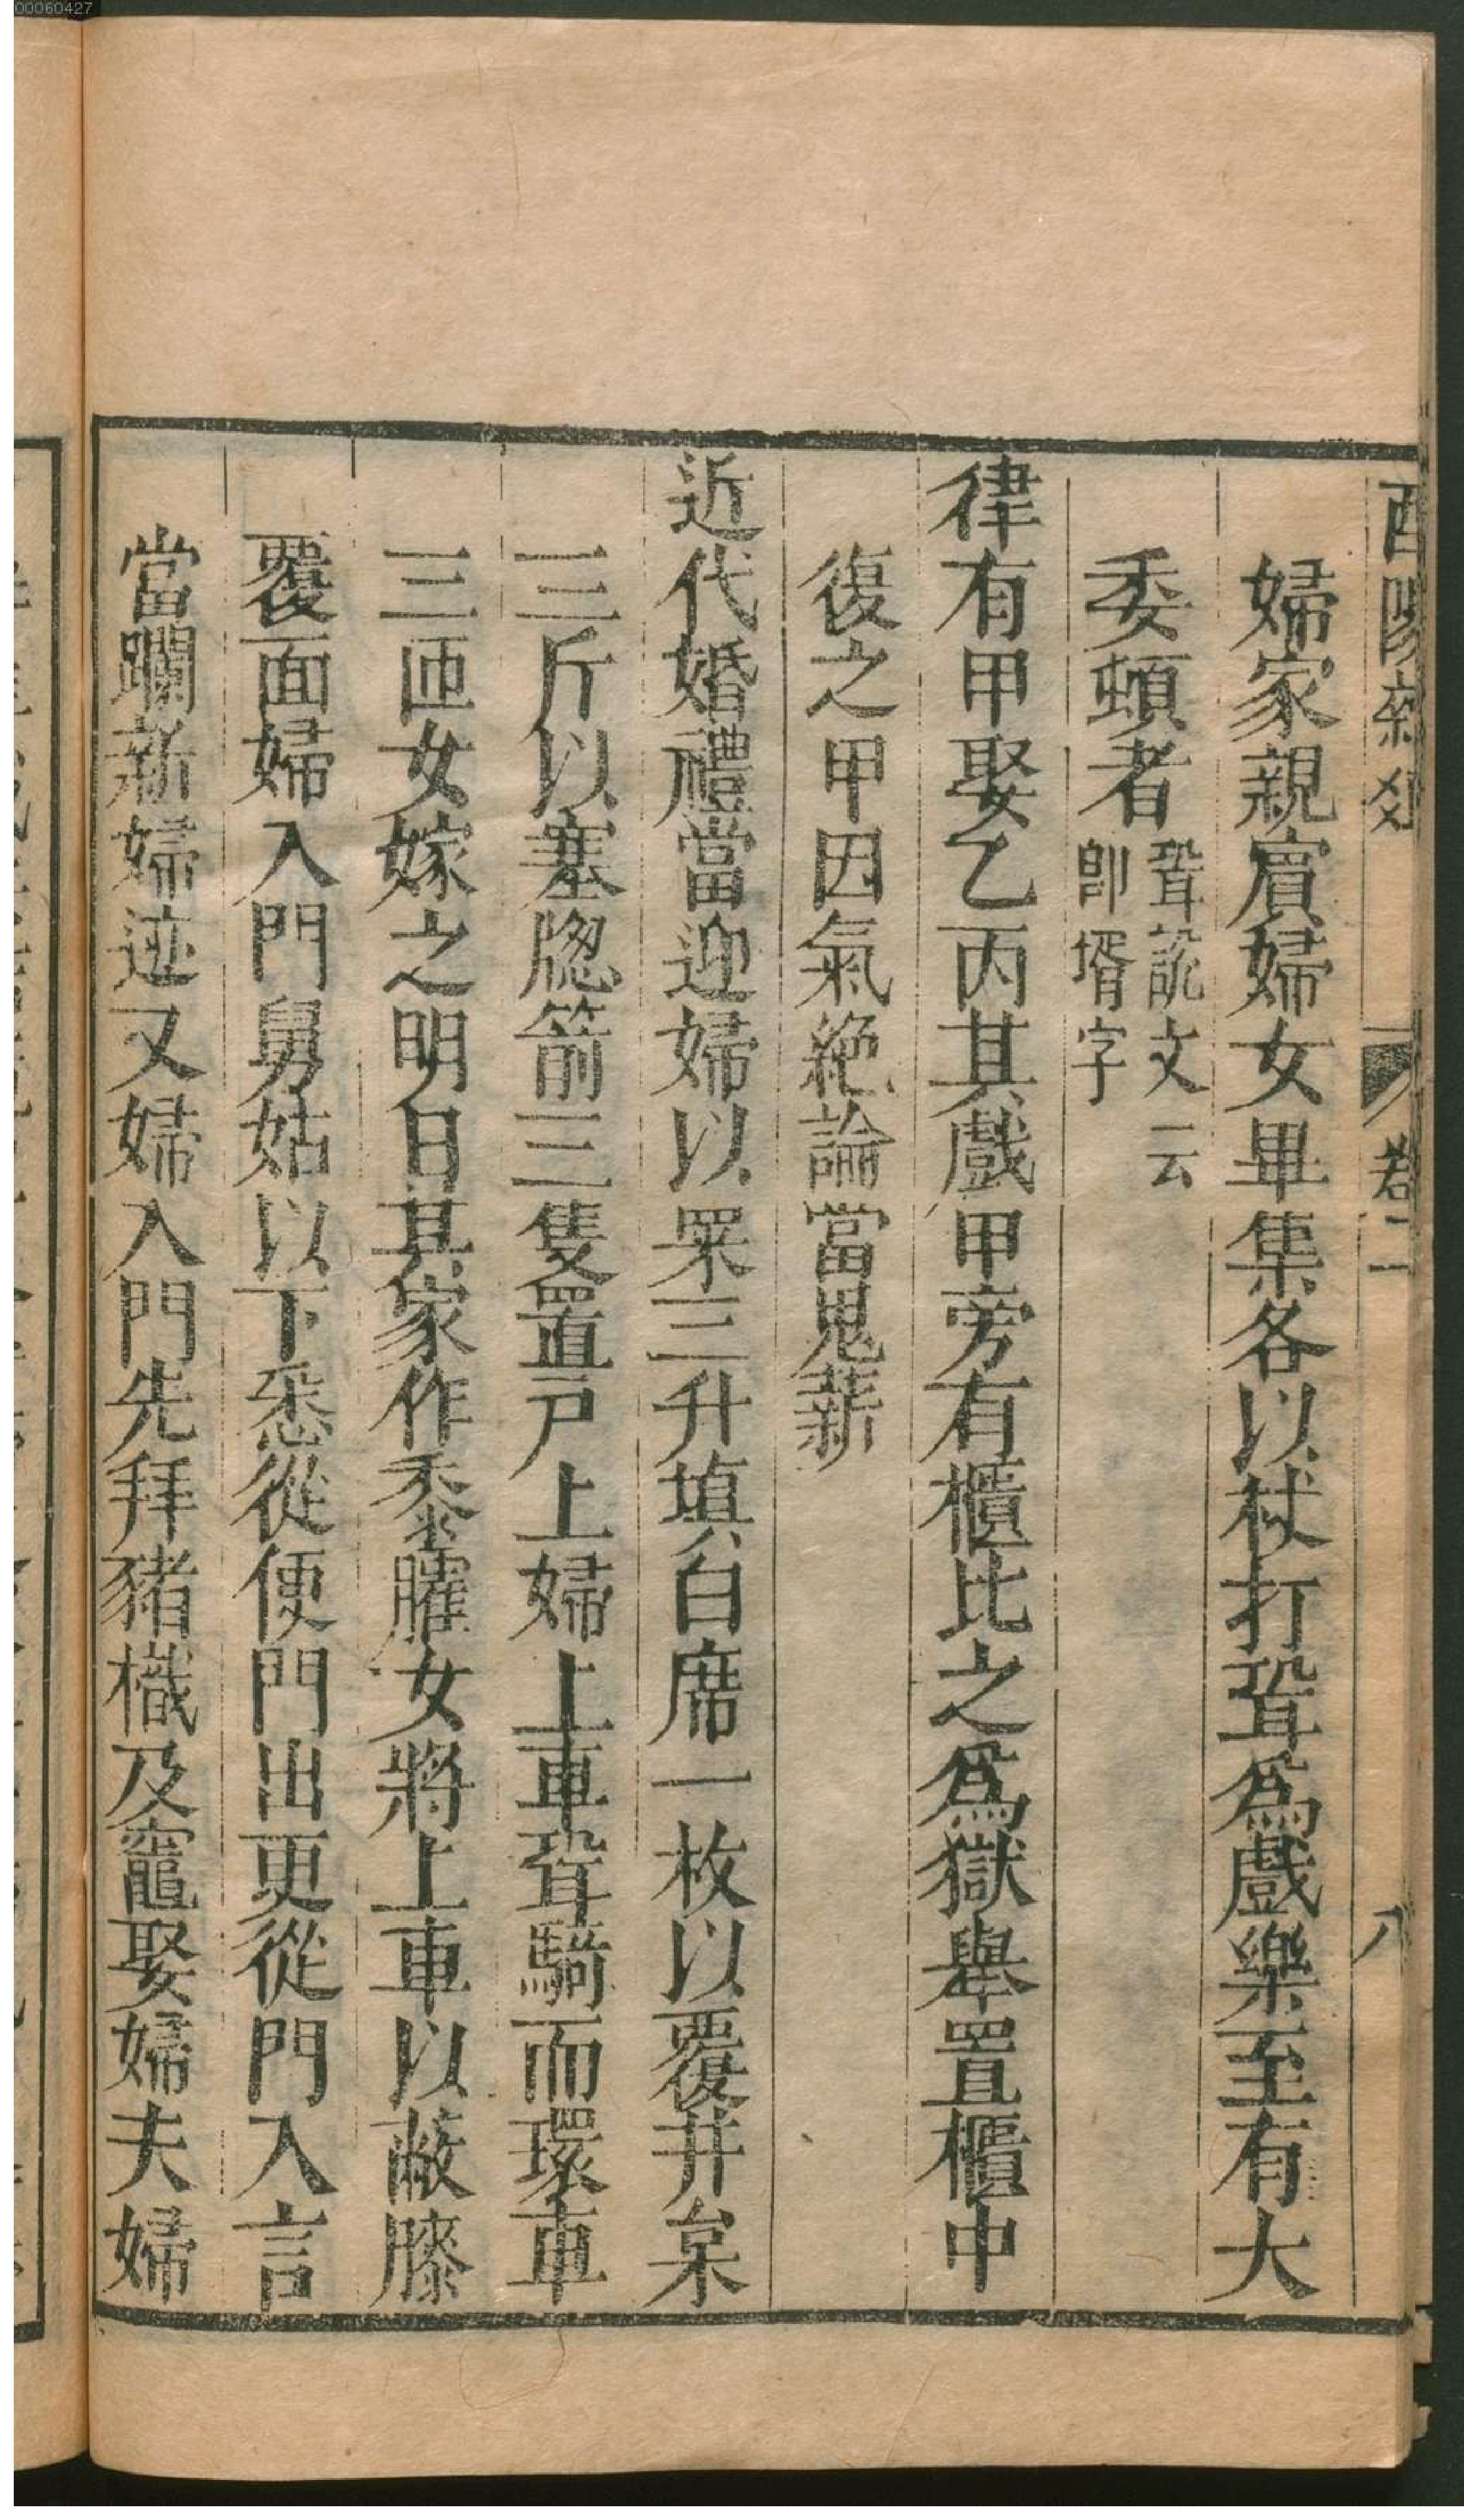 00060427
酉陽雜
卷二
八
婦家親賔婦女畢集各以杖打聓爲戲樂至有大
委頓者聓説文云
卽壻字
律有甲娶乙丙其戲甲旁有櫃比之爲獄舉置櫃中
復之甲因氣絶論當鬼薪
近代婚禮當迎婦以粟三升填臼席一枚以覆井枲
三斤以塞牕箭三隻置戸上婦上車聓騎而環車
三匝女嫁之明日其家作黍臛女將上車以蔽膝
覆面婦入門舅姑以下悉從便門出更從門入言
當躝新婦迹又婦入門先拜豬樴及竈娶婦夫婦